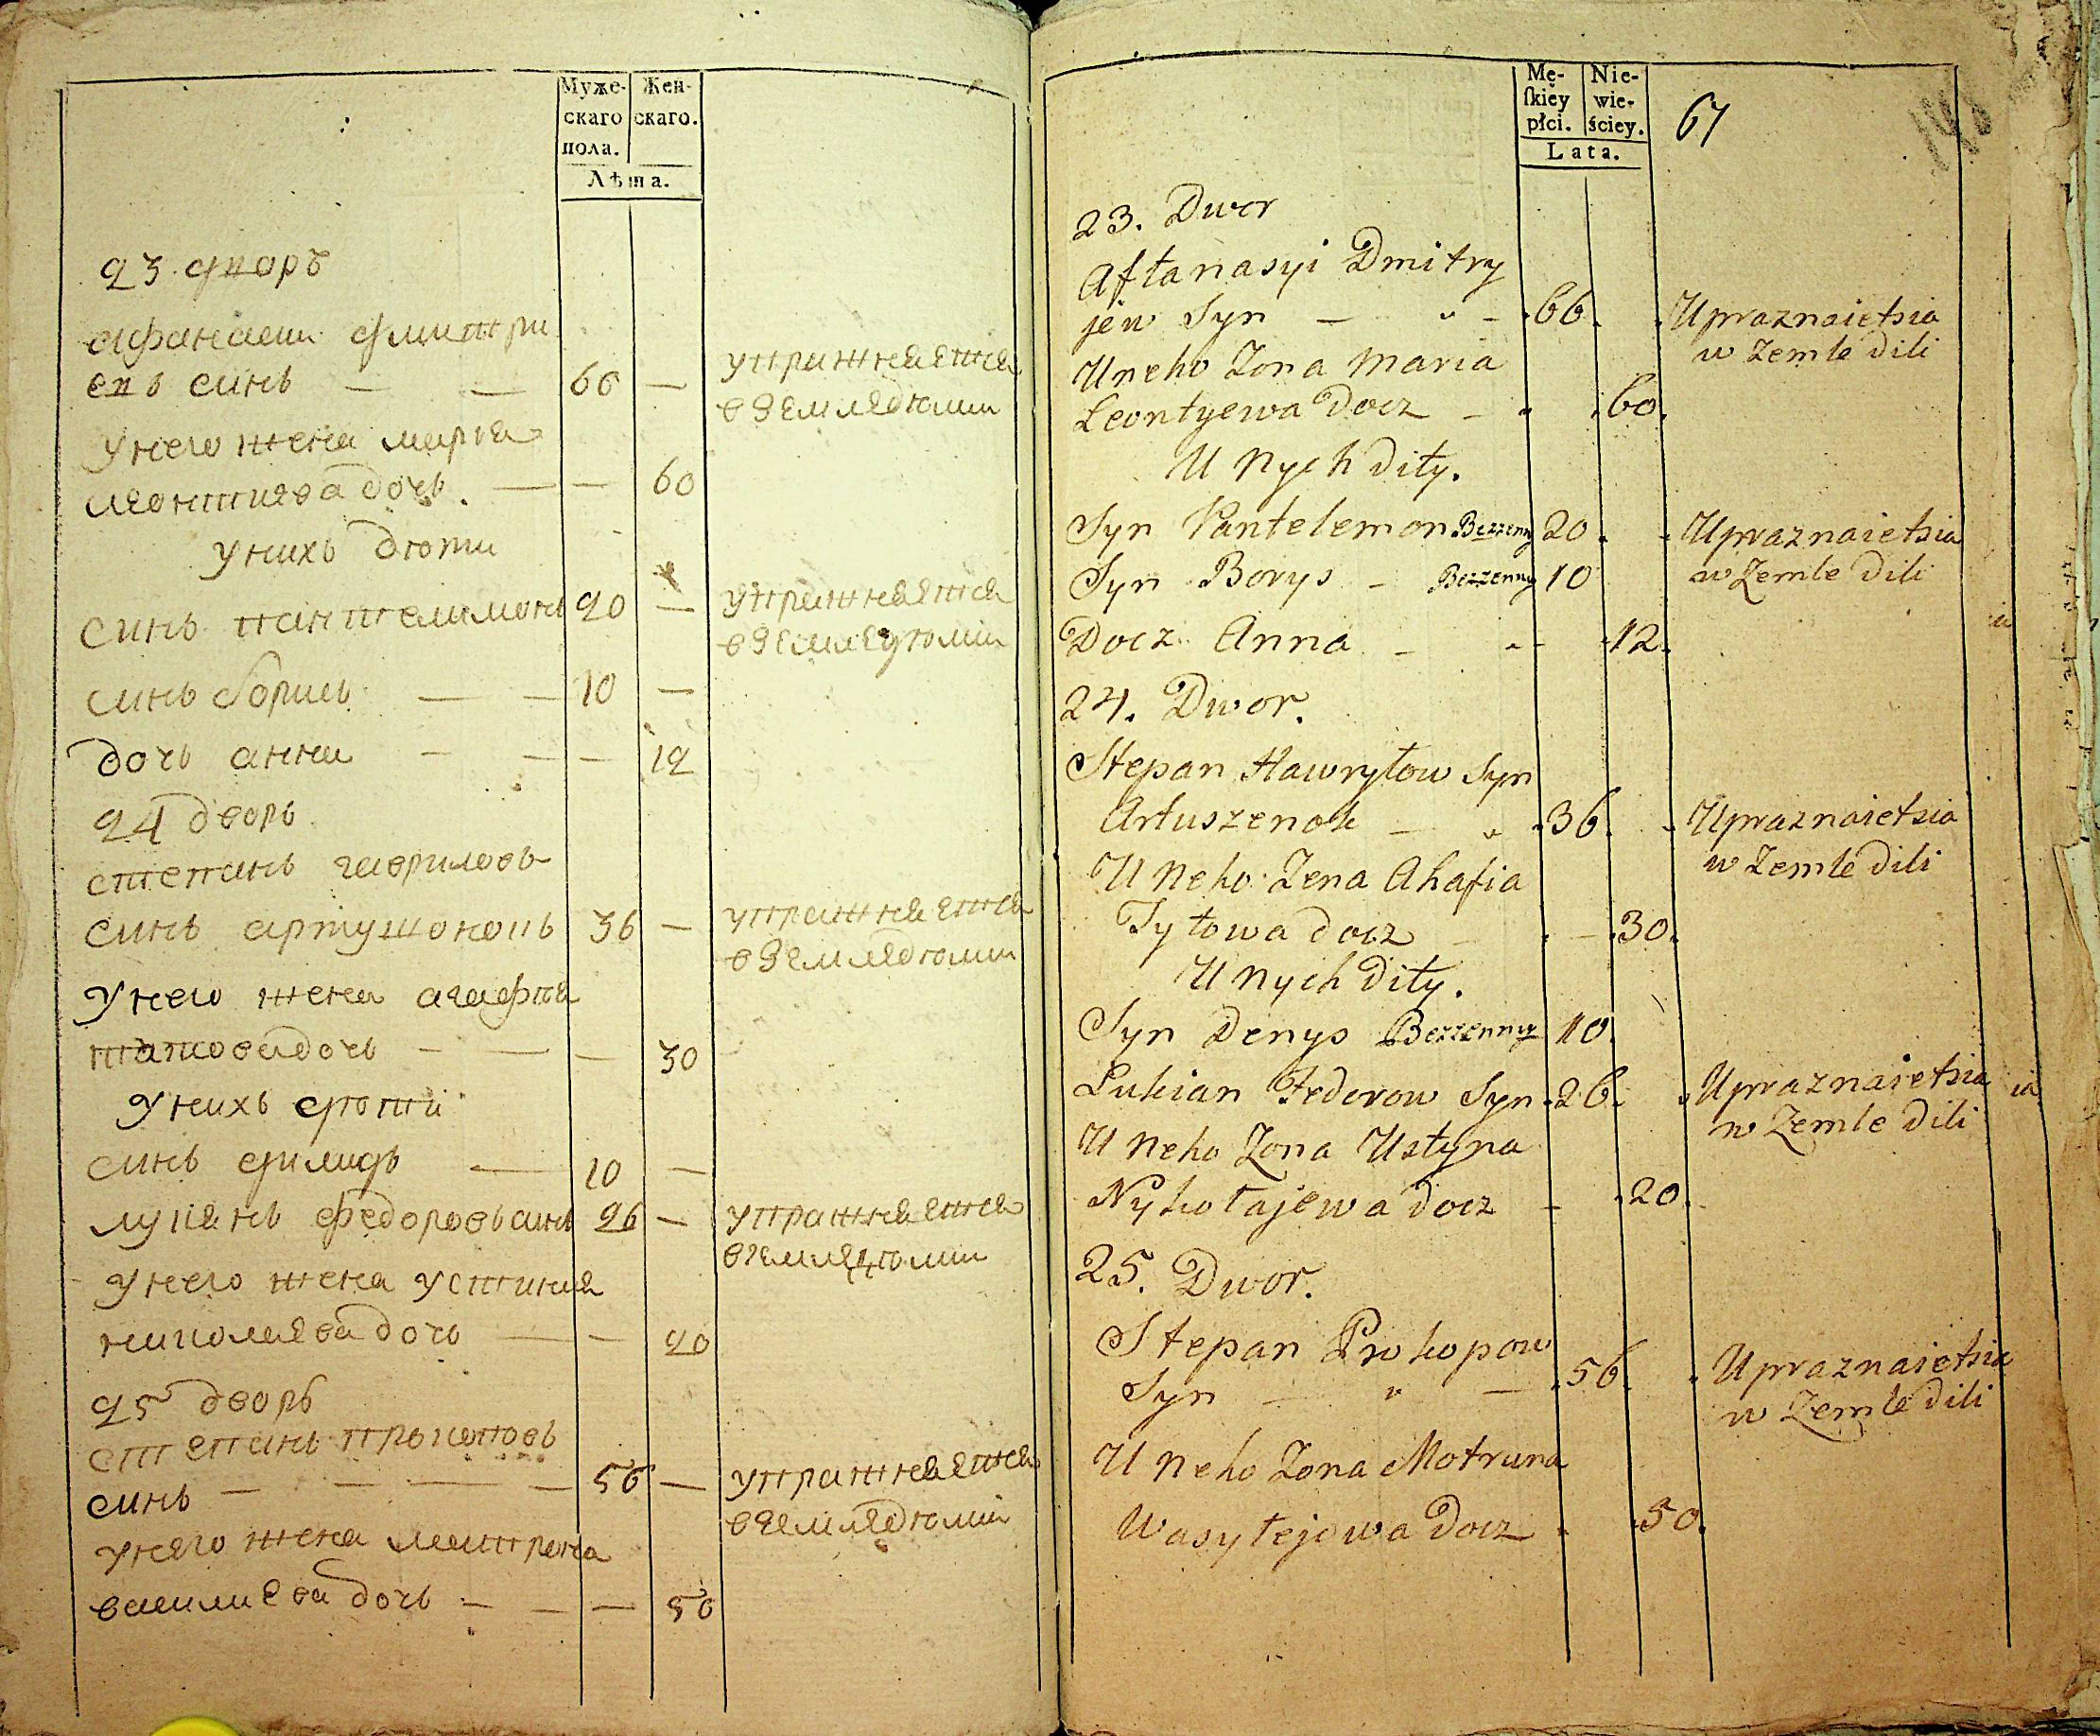 Муже-
скаго
пола.
Жен-
скаго.
Лѣта.
23. дворъ
афанасии дмитри
евъ синъ — — 66 — упражняется
в земледюлии
У него жена маръя
леонтиева дочь. — — 60
У нихъ дюти
синъ пантелимонъ 20 — упражняется
в земледюлии
синъ борисъ — — 10 —
дочь анна — — — 12
24 дворъ
степанъ гавриловъ
синъ артушонокъ 36 — упражняется
в земледюлии
У него жена агафия
титова дочь — — — 30
У нихъ дюти
синъ — 10 —
лукянъ федоровъ синъ 26 — упражняется
в земледюлии
У него жена устиния
николаева дочь — — 20
25 дворъ
степанъ прокоповъ
синъ — — — — 56 — упражняется
в земледюлии
У него жена матрона
василиева дочь — — — 50
Mę-
ſkiey
płci.
Nie-
wie-
ściey.
Lata.
67
23. Dwor
Aftanasyi Dmitry
jew Syn — " - 66. Upraznaietsia
w Zemle dili
U neho Zona Maria
Leontyewa Docz - 60.
U Nych Dity.
Syn Pantelemon Bezzenny 20. Upraznaietsia
w Zemle dili
Syn Borys - Bezzenny 10
Docz Anna - 12.
24. Dwor.
Stepan Hawryłow Syn
Artuszenok — " 36. Upraznaietsia
w Zemle dili
U Neho Zena Ahafia
Tytowa docz — 30.
U Nych Dity.
Syn Denys Bezzenny 10
Lukian Fedorow Syn 26. Upraznaietsia
w Zemle dili
U Neho Zona Ustyna
Nykołajewa docz - 20.
25. Dwor.
Stepan Prokopow
Syn — " — 56. Upraznaietsia
w Zemle dili
U Neho Zona Motruna
Wasylejowa Docz 50.